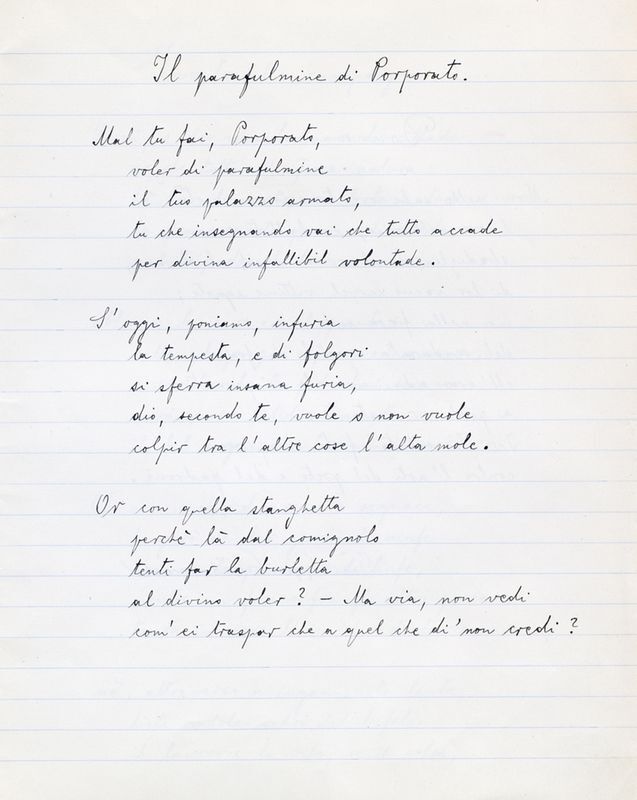 Il parafulmine di Porporato.
Mal tu fai, Porporato,
voler di parafulmine
il tuo palazzo armato,
tu che insegnando vai che tutto accade
per divina infallibil volontade.
S'oggi, poniamo, infuria
la tempesta, e di folgori
si sferra insana furia,
dio, secondo te, vuole o non vuole
colpir tra l'altre cose l'alta mole.
Or con quella stanghetta
perchè là dal comignolo
tenti far la burletta
al divino voler? – Ma via, non vedi
com'ei traspar che a quel che di' non credi?